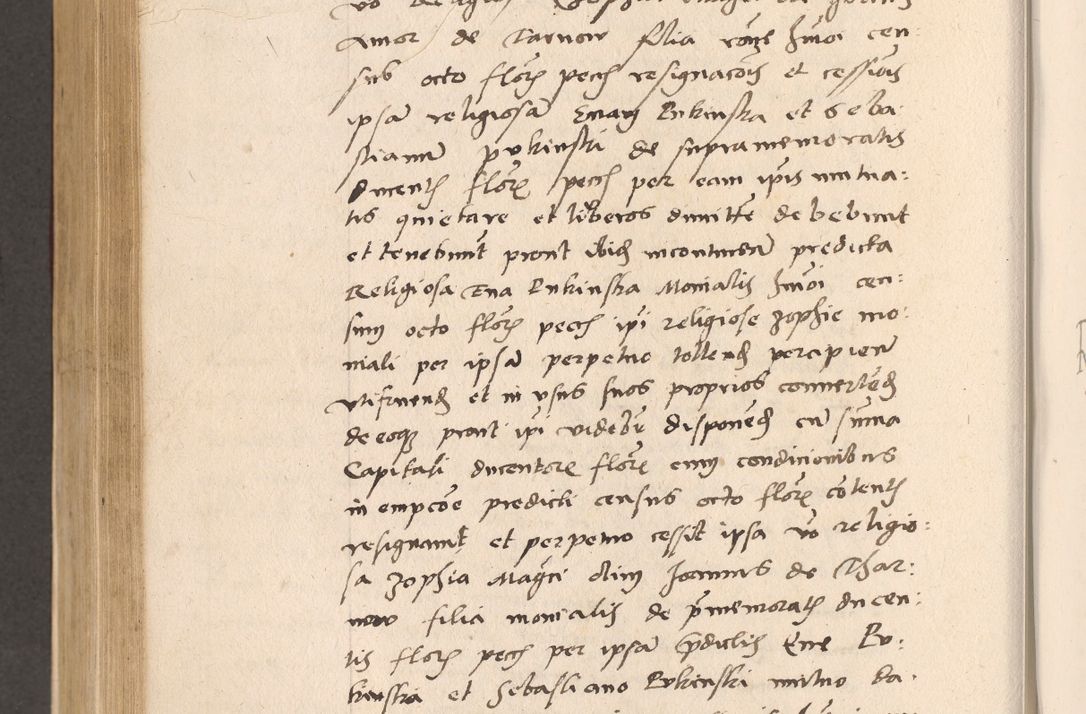 Amor de Tarnow filia rone hmoi cen:
sus octo floren pecch resignacois et cessiois
ipsam religiosam Ewam Bukinska et Seba
stianum Bukinski de supramemoratis
ducentis floren pecch per eam ipsis mutua:
tis quietare et liberos dimitte debebunt
et tenebunt prout ibidem incontinenti predicta
Religiosa Ewa Bukinska Monialis hmoi cen:
sum octo floren pecch ipi religiose zophie mo:
niali per ipsam perpetuo tollend percipiend
vtifruend et in vsus suos proprios conuertend
de eoque prout ipi videbitur disponend cum summa
Capitali ducentorum floren cum condicionibus
in empcoe predicti census octo floren contentis
resignauit et perpetuo cessit ipsa vo religio:
sa zophia Magci olim Joannis de Thar:
now filia monialis de pmemoratis ducen:
tis floren pecch per ipsam pdictis Ewe Bu:
kinska et Sebastiano Bukinski mutuo da: